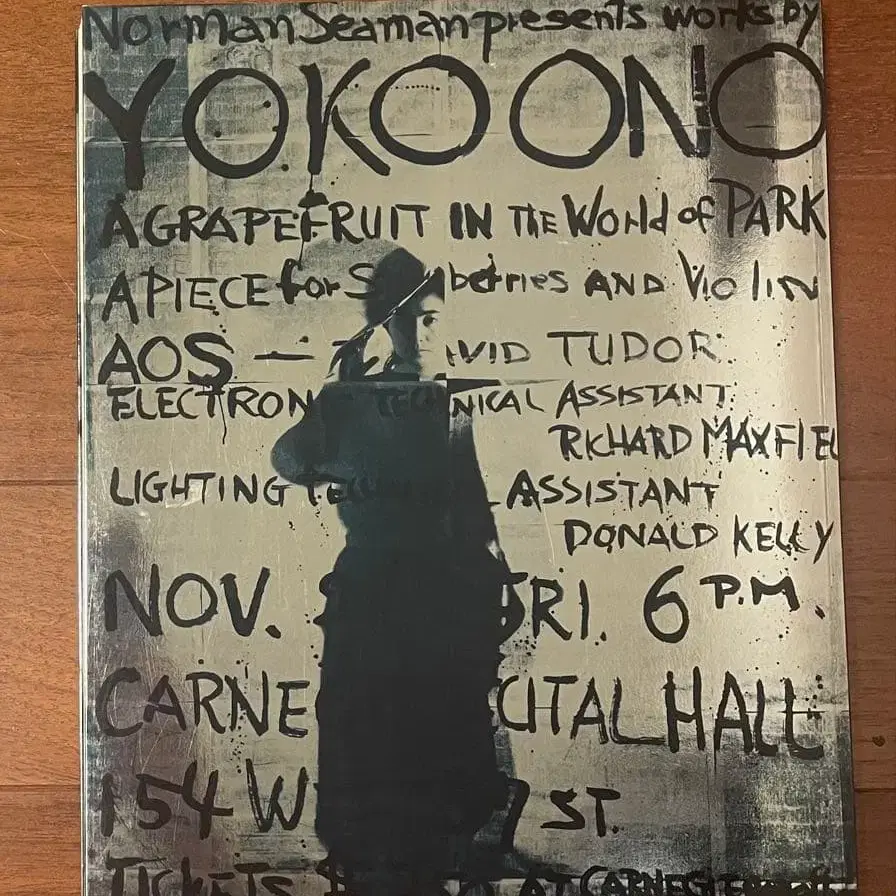 Norman Seaman presents works by
YOKO ONO
A GRAPEFRUIT IN THE WORLD of PARK
A PIECE for S berries AND VIOLIN
AOS — VID TUDOR
ELECTRON TECHNICAL ASSISTANT
RICHARD MAXFIEL
LIGHTING TEC L ASSISTANT
DONALD KELLY
NOV. FRI. 6 P.M.
CARNE CITAL HALL
154 W 7 ST.
TICKETS $ AT CARNEGIE